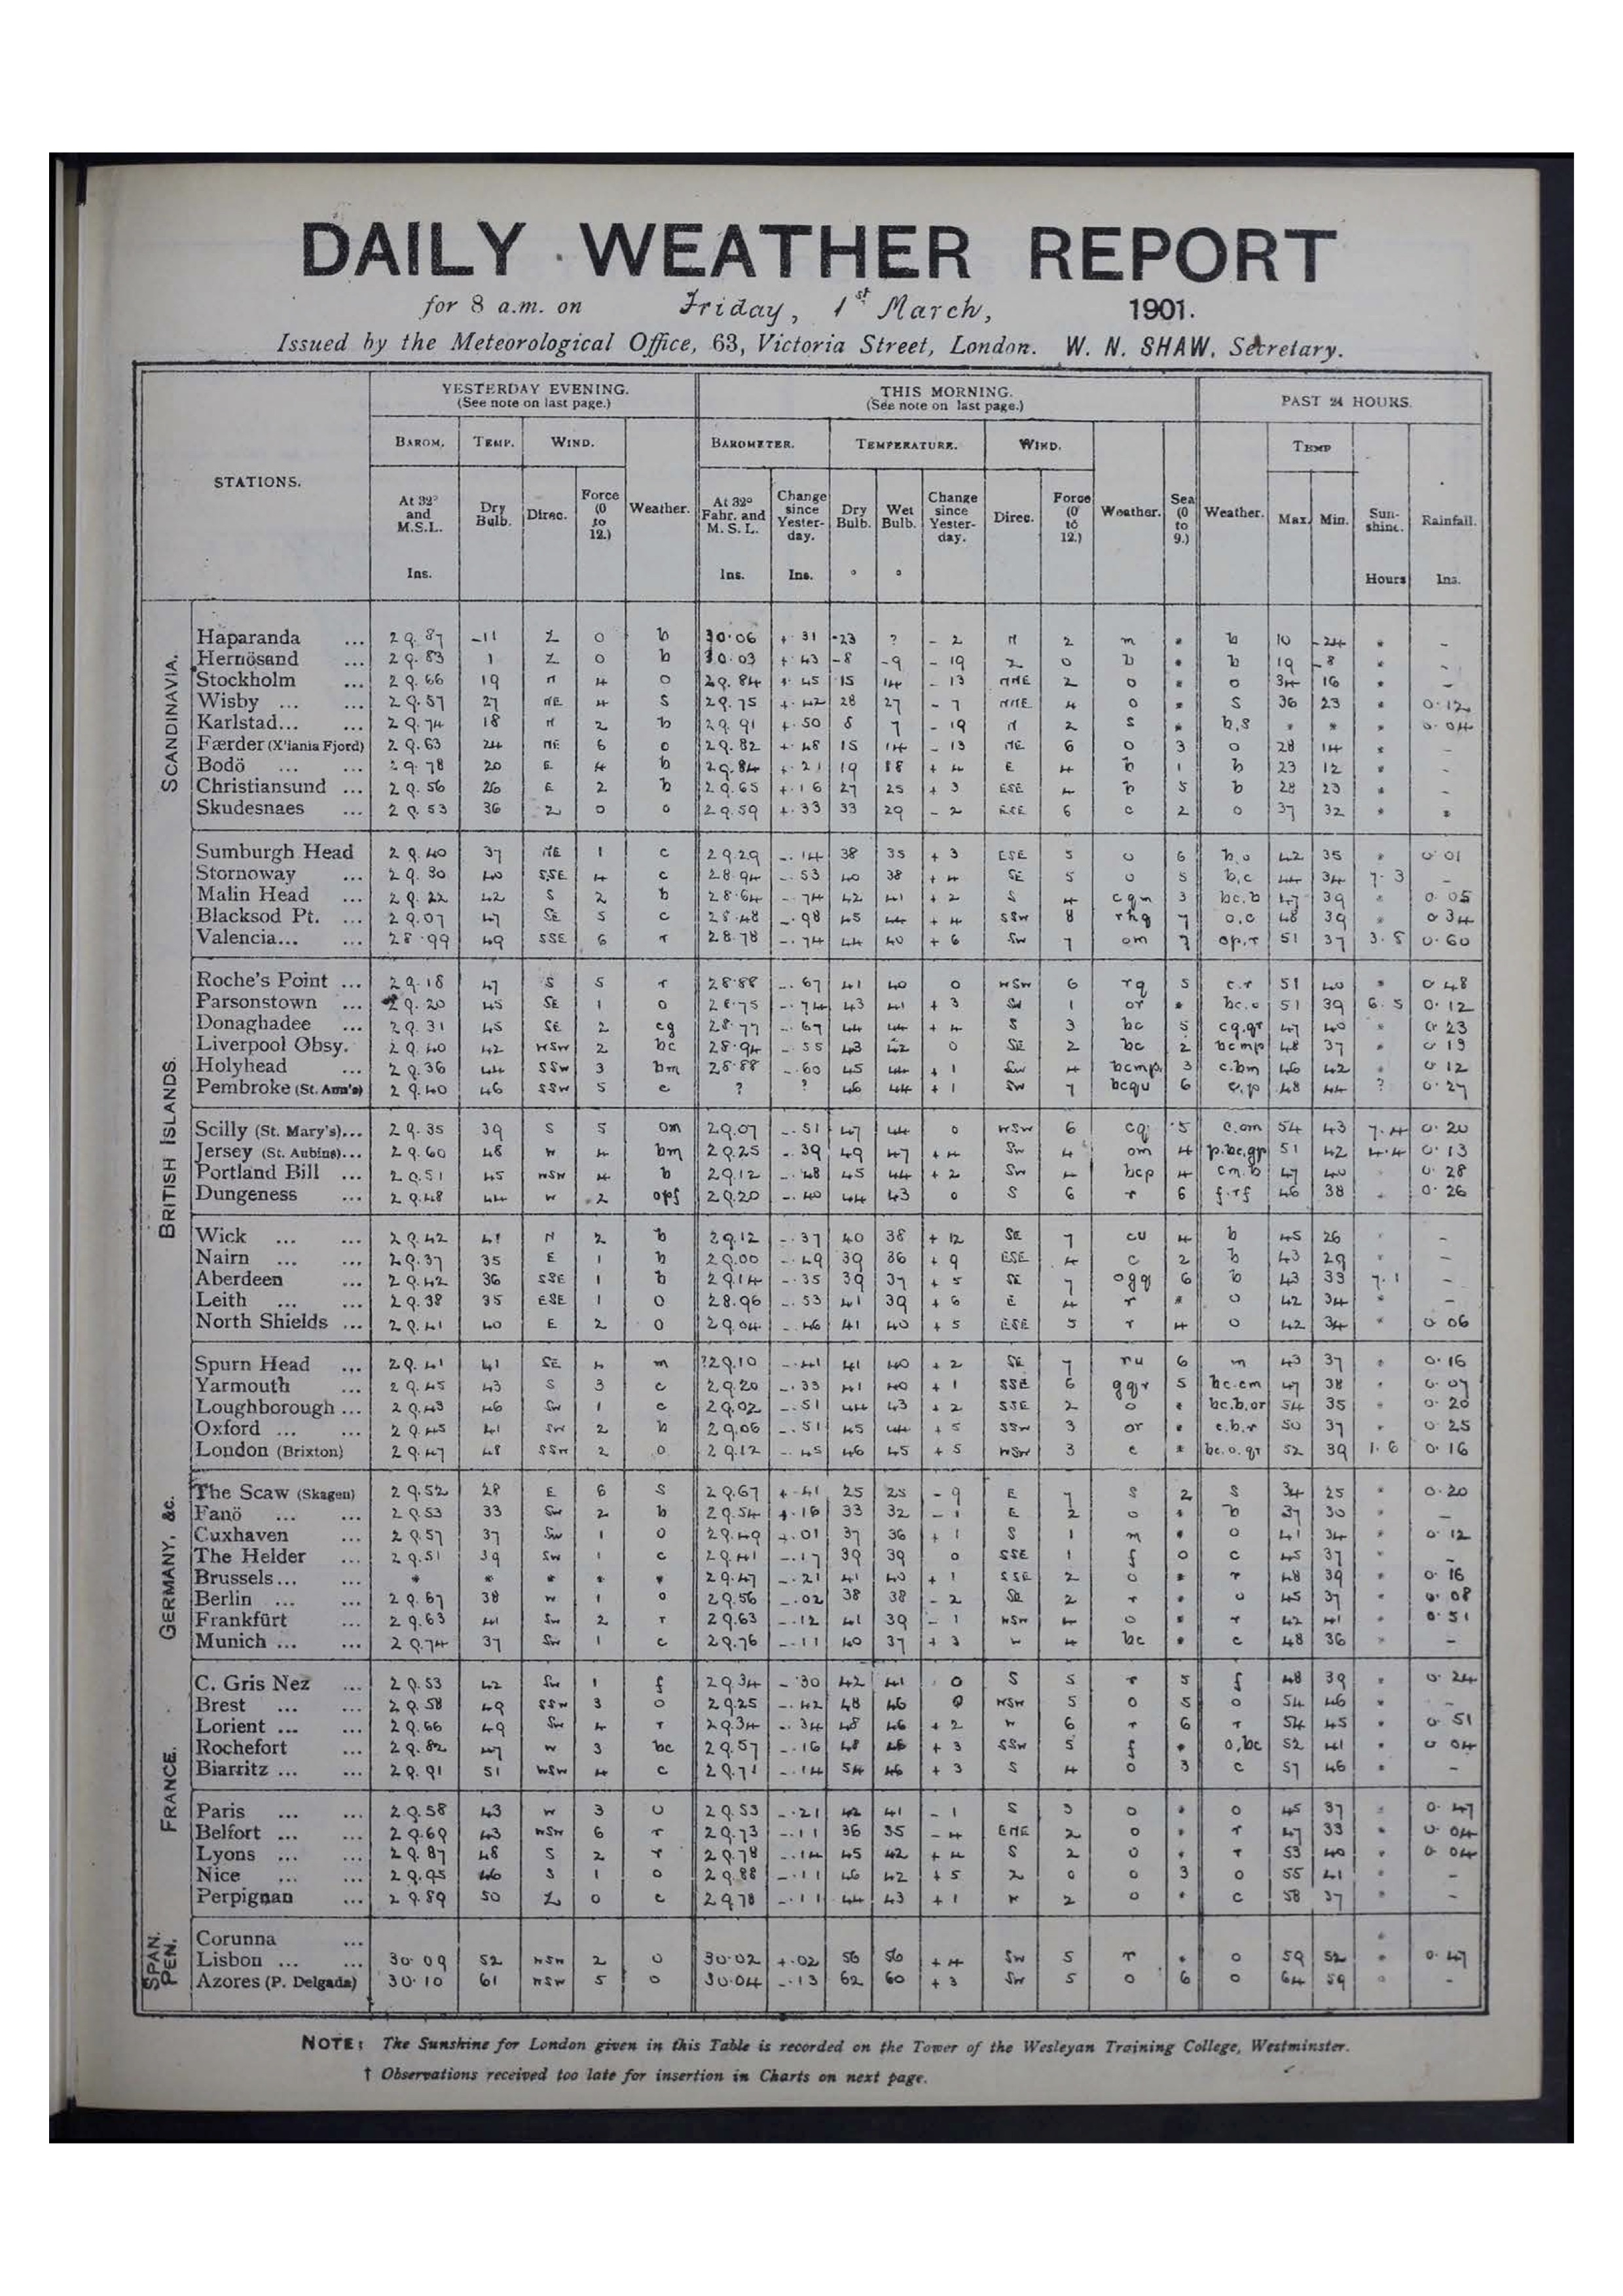 DAILY WEATHER REPORT
for 8 a.m. on Friday, 1st March, 1901.
Issued by the Meteorological Office, 63, Victoria Street, London. W. N. SHAW, Secretary.
STATIONS. YESTERDAY EVENING. (See note on last page.) THIS MORNING. (See note on last page.) PAST 24 HOURS.
BAROM. TEMP. WIND. Weather. BAROMETER. TEMPERATURE. WIND. Weather. Sea (0 to 9.) Weather. TEMP Sunshine. Rainfall.
At 32° and M.S.L. Dry Bulb. Direc. Force (0 to 12.) At 32° Fahr. and M.S.L. Change since Yesterday. Dry Bulb. Wet Bulb. Change since Yesterday. Direc. Force (0 to 12.) Max. Min.
Ins. Ins. Ins. ° ° Hours Ins.
SCANDINAVIA.
Haparanda ... 29.87 -11 Z 0 b 30.06 +.31 -23 ? - 2 N 2 m * b 10 -24 * -
Hernösand 29.83 1 Z 0 b 30.03 +.43 -8 -9 - 19 Z 0 b * b 19 -8 * -
Stockholm ... 29.66 19 N 4 o 29.84 +.45 15 14 - 13 NNE 2 o * o 34 16 * -
Wisby ... ... 29.57 27 NE 4 s 29.75 +.42 28 27 - 7 NNE 4 o * s 36 23 * 0.12
Karlstad... ... 29.74 18 N 2 b 29.91 +.50 8 7 - 19 N 2 s * b,s * * * 0.04
Færder (X'iania Fjord) 29.63 24 NE 6 o 29.82 +.48 15 14 - 13 NE 6 o 3 o 28 14 * -
Bodö ... ... 29.78 20 E 4 b 29.84 +.21 19 18 + 4 E 4 b 1 b 23 12 * -
Christiansund ... 29.56 26 E 2 b 29.65 +.16 27 25 + 3 ESE 4 b 5 b 28 23 * -
Skudesnaes ... 29.53 36 Z 0 o 29.59 +.33 33 29 - 2 ESE 6 c 2 o 37 32 * *
BRITISH ISLANDS.
Sumburgh Head 29.40 37 NE 1 c 29.29 -.14 38 35 + 3 ESE 5 o 6 b,o 42 35 * 0.01
Stornoway ... 29.30 40 SSE 4 c 28.94 -.53 40 38 + 4 SE 5 o 5 b,c 44 34 7.3 -
Malin Head ... 29.22 42 S 2 b 28.64 -.74 42 41 + 2 S 4 cqm 3 bc.b 47 39 * 0.05
Blacksod Pt. ... 29.07 47 SE 5 c 28.48 -.98 45 44 + 4 SSW 8 rhq 7 o,c 48 39 * 0.34
Valencia... ... 28.99 49 SSE 6 r 28.78 -.74 44 40 + 6 SW 7 om 7 op,r 51 37 3.5 0.60
Roche's Point ... 29.18 47 S 5 r 28.88 -.67 41 40 0 WSW 6 rq 5 c.r 51 40 * 0.48
Parsonstown ... 29.20 45 SE 1 o 28.75 -.74 43 41 + 3 SW 1 or * bc.o 51 39 6.5 0.12
Donaghadee ... 29.31 45 SE 2 cq 28.77 -.67 44 44 + 4 S 3 bc 5 cq.qr 47 40 * 0.23
Liverpool Obsy. 29.40 42 WSW 2 bc 28.94 -.55 43 42 0 SE 2 bc 2 bcmp 48 37 * 0.19
Holyhead ... 29.36 44 SSW 3 bm 28.88 -.60 45 44 + 1 SW 4 bcmp 3 c.bm 46 42 * 0.12
Pembroke (St. Ann's) 29.40 46 SSW 5 c ? ? 46 44 + 1 SW 7 bcqu 6 c,p 48 44 ? 0.27
Scilly (St. Mary's)... 29.35 39 S 5 om 29.07 -.51 47 44 0 WSW 6 cq 5 c.om 54 43 7.4 0.20
Jersey (St. Aubins)... 29.60 48 W 4 bm 29.25 -.39 49 47 + 4 SW 4 om 4 p.bc,gp 51 42 4.4 0.13
Portland Bill ... 29.51 45 WSW 4 b 29.12 -.48 45 44 + 2 SW 4 bcp 4 cm.b 47 40 0.28
Dungeness ... 29.48 44 W 2 opf 29.20 -.40 44 43 0 S 6 r 6 f.rf 46 38 0.26
Wick ... ... 29.42 41 N 2 b 29.12 -.37 40 38 + 12 SE 7 cu 4 b 45 26 * -
Nairn ... ... 29.37 35 E 1 b 29.00 -.49 39 36 + 9 ESE 4 c 2 b 43 29 * -
Aberdeen ... 29.42 36 SSE 1 b 29.14 -.35 39 37 + 5 SE 7 ogq 6 b 43 33 7.1 -
Leith ... ... 29.38 35 ESE 1 o 28.96 -.53 41 39 + 6 E 4 r * o 42 34 * -
North Shields ... 29.41 40 E 2 o 29.04 -.46 41 40 + 5 ESE 5 r 4 o 42 34 * 0.06
Spurn Head ... 29.41 41 SE 4 m ?29.10 -.41 41 40 + 2 SE 7 ru 6 m 43 37 * 0.16
Yarmouth ... 29.45 43 S 3 c 29.20 -.33 41 40 + 1 SSE 6 gqr 5 bc.cm 47 38 * 0.07
Loughborough ... 29.43 46 SW 1 c 29.02 -.51 44 43 + 2 SSE 2 o * bc.b.or 54 35 * 0.20
Oxford ... ... 29.45 41 SW 2 b 29.06 -.51 45 44 + 5 SSW 3 or * c.b.r 50 37 * 0.25
London (Brixton) 29.47 48 SSW 2 o 29.12 -.45 46 45 + 5 WSW 3 c * bc.o.qr 52 39 1.6 0.16
GERMANY, &c.
The Scaw (Skagen) 29.52 28 E 6 s 29.67 +.41 25 25 - 9 E 7 s 2 s 34 25 * 0.20
Fanö ... ... 29.53 33 SW 2 b 29.54 +.16 33 32 - 1 E 2 o * b 37 30 * -
Cuxhaven ... 29.57 37 SW 1 o 29.49 +.01 37 36 + 1 S 1 m * o 41 34 * 0.12
The Helder ... 29.51 39 SW 1 c 29.41 -.17 39 39 0 SSE 1 f 0 c 45 37 * -
Brussels... ... * * * * * 29.47 -.21 41 40 + 1 SSE 2 o * r 48 39 * 0.16
Berlin ... ... 29.67 38 W 1 o 29.56 -.02 38 38 - 2 SE 2 r * o 45 37 * 0.08
Frankfürt ... 29.63 41 SW 2 r 29.63 -.12 41 39 - 1 WSW 4 o * r 42 41 * 0.51
Munich ... ... 29.74 37 SW 1 c 29.76 -.11 40 37 + 3 W 4 bc * c 48 36 * -
FRANCE.
C. Gris Nez ... 29.53 42 SW 1 f 29.34 -.30 42 41 0 S 5 r 5 f 48 39 * 0.24
Brest ... ... 29.58 49 SSW 3 o 29.25 -.42 48 46 0 WSW 5 o 5 o 54 46 * -
Lorient ... ... 29.66 49 SW 4 r 29.34 -.34 48 46 + 2 W 6 r 6 r 54 45 * 0.51
Rochefort ... 29.82 47 W 3 bc 29.57 -.16 48 46 + 3 SSW 5 f * o,bc 52 41 * 0.04
Biarritz ... ... 29.91 51 WSW 4 c 29.71 -.14 54 46 + 3 S 4 o 3 c 57 46 * -
Paris ... ... 29.58 43 W 3 o 29.53 -.21 42 41 - 1 S 3 o * o 45 37 * 0.47
Belfort ... ... 29.69 43 WSW 6 r 29.73 -.11 36 35 - 4 ENE 2 o * r 47 33 * 0.04
Lyons ... ... 29.87 48 S 2 r 29.78 -.14 45 42 + 4 S 2 o * r 53 40 * 0.04
Nice ... ... 29.95 46 S 1 o 29.88 -.11 46 42 + 5 Z 0 o 3 o 55 41 * -
Perpignan ... 29.89 50 Z 0 c 29.78 -.11 44 43 + 1 W 2 o * c 58 37 * -
SPAN. PEN.
Corunna ...
Lisbon ... ... 30.09 52 WSW 2 o 30.02 +.02 56 56 + 4 SW 5 r * o 59 52 * 0.47
Azores (P. Delgada) 30.10 61 WSW 5 o 30.04 -.13 62 60 + 3 SW 5 o 6 o 64 59 * -
NOTE: The Sunshine for London given in this Table is recorded on the Tower of the Wesleyan Training College, Westminster.
† Observations received too late for insertion in Charts on next page.